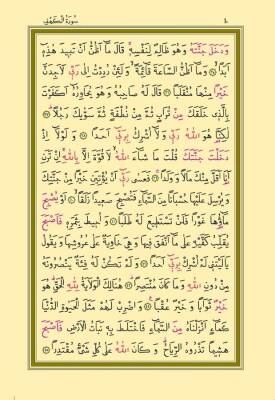 سُورَةُ الْكَهْفِ
وَدَخَلَ جَنَّتَهُ وَهُوَ ظَالِمٌ لِنَفْسِهِ قَالَ مَا أَظُنُّ أَنْ تَبِيدَ هٰذِهِ
أَبَدًا وَمَا أَظُنُّ السَّاعَةَ قَائِمَةً وَلَئِنْ رُدِدْتُ إِلَى رَبِّي لَأَجِدَنَّ
خَيْرًا مِنْهَا مُنْقَلَبًا قَالَ لَهُ صَاحِبُهُ وَهُوَ يُحَاوِرُهُ أَكَفَرْتَ
بِالَّذِي خَلَقَكَ مِنْ تُرَابٍ ثُمَّ مِنْ نُطْفَةٍ ثُمَّ سَوّٰيكَ رَجُلًا
لٰكِنَّا هُوَ اللّٰهُ رَبِّي وَلَا أُشْرِكُ بِرَبِّي أَحَدًا وَلَوْلَا إِذْ
دَخَلْتَ جَنَّتَكَ قُلْتَ مَا شَاءَ اللّٰهُ لَا قُوَّةَ إِلَّا بِاللّٰهِ إِنْ تَرَنِ
أَنَا أَقَلَّ مِنْكَ مَالًا وَوَلَدًا فَعَسَى رَبِّي أَنْ يُؤْتِيَنِ خَيْرًا مِنْ جَنَّتِكَ
وَيُرْسِلَ عَلَيْهَا حُسْبَانًا مِنَ السَّمَاءِ فَتُصْبِحَ صَعِيدًا زَلَقًا أَوْ يُصْبِحَ
مَاؤُهَا غَوْرًا فَلَنْ تَسْتَطِيعَ لَهُ طَلَبًا وَأُحِيطَ بِثَمَرِهِ فَأَصْبَحَ
يُقَلِّبُ كَفَّيْهِ عَلَى مَا أَنْفَقَ فِيهَا وَهِيَ خَاوِيَةٌ عَلَى عُرُوشِهَا وَيَقُولُ
يَالَيْتَنِي لَمْ أُشْرِكْ بِرَبِّي أَحَدًا وَلَمْ تَكُنْ لَهُ فِئَةٌ يَنْصُرُونَهُ
مِنْ دُونِ اللّٰهِ وَمَا كَانَ مُنْتَصِرًا هُنَالِكَ الْوَلَايَةُ لِلّٰهِ الْحَقِّ هُوَ
خَيْرٌ ثَوَابًا وَخَيْرٌ عُقْبًا وَاضْرِبْ لَهُمْ مَثَلَ الْحَيٰوةِ الدُّنْيَا
كَمَاءٍ أَنْزَلْنَاهُ مِنَ السَّمَاءِ فَاخْتَلَطَ بِهِ نَبَاتُ الْأَرْضِ فَأَصْبَحَ
هَشِيمًا تَذْرُوهُ الرِّيَاحُ وَكَانَ اللّٰهُ عَلَى كُلِّ شَيْءٍ مُقْتَدِرًا